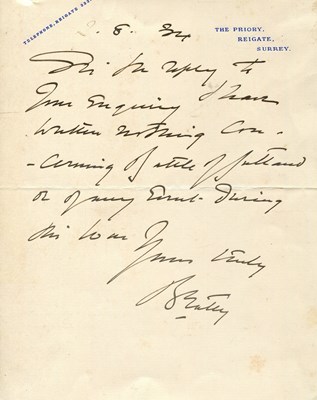 TELEPHONE, REIGATE
THE PRIORY,
REIGATE,
SURREY.
. 8. 34
Sir In reply to
Your Enquiry I have
written nothing Con-
-cerning Battle of Jutland
or of any Event during
this War
Yours truly
Beatty